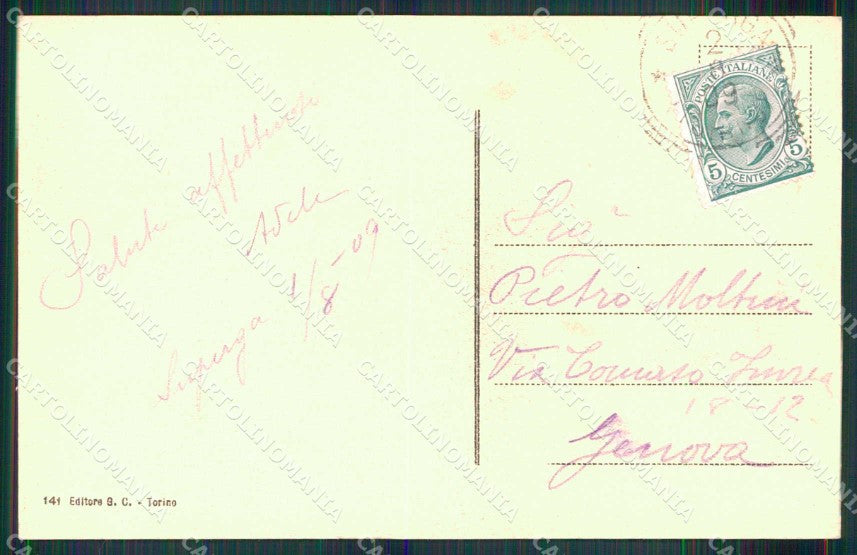 Saluti affettuosi
Adele
Superga 1/8-09
POSTE ITALIANE
5 CENTESIMI 5
Sig.
Pietro
Via Tomaso Invrea
18-12
Genova
141 Editore G. C. - Torino
CARTOLINOMANIA